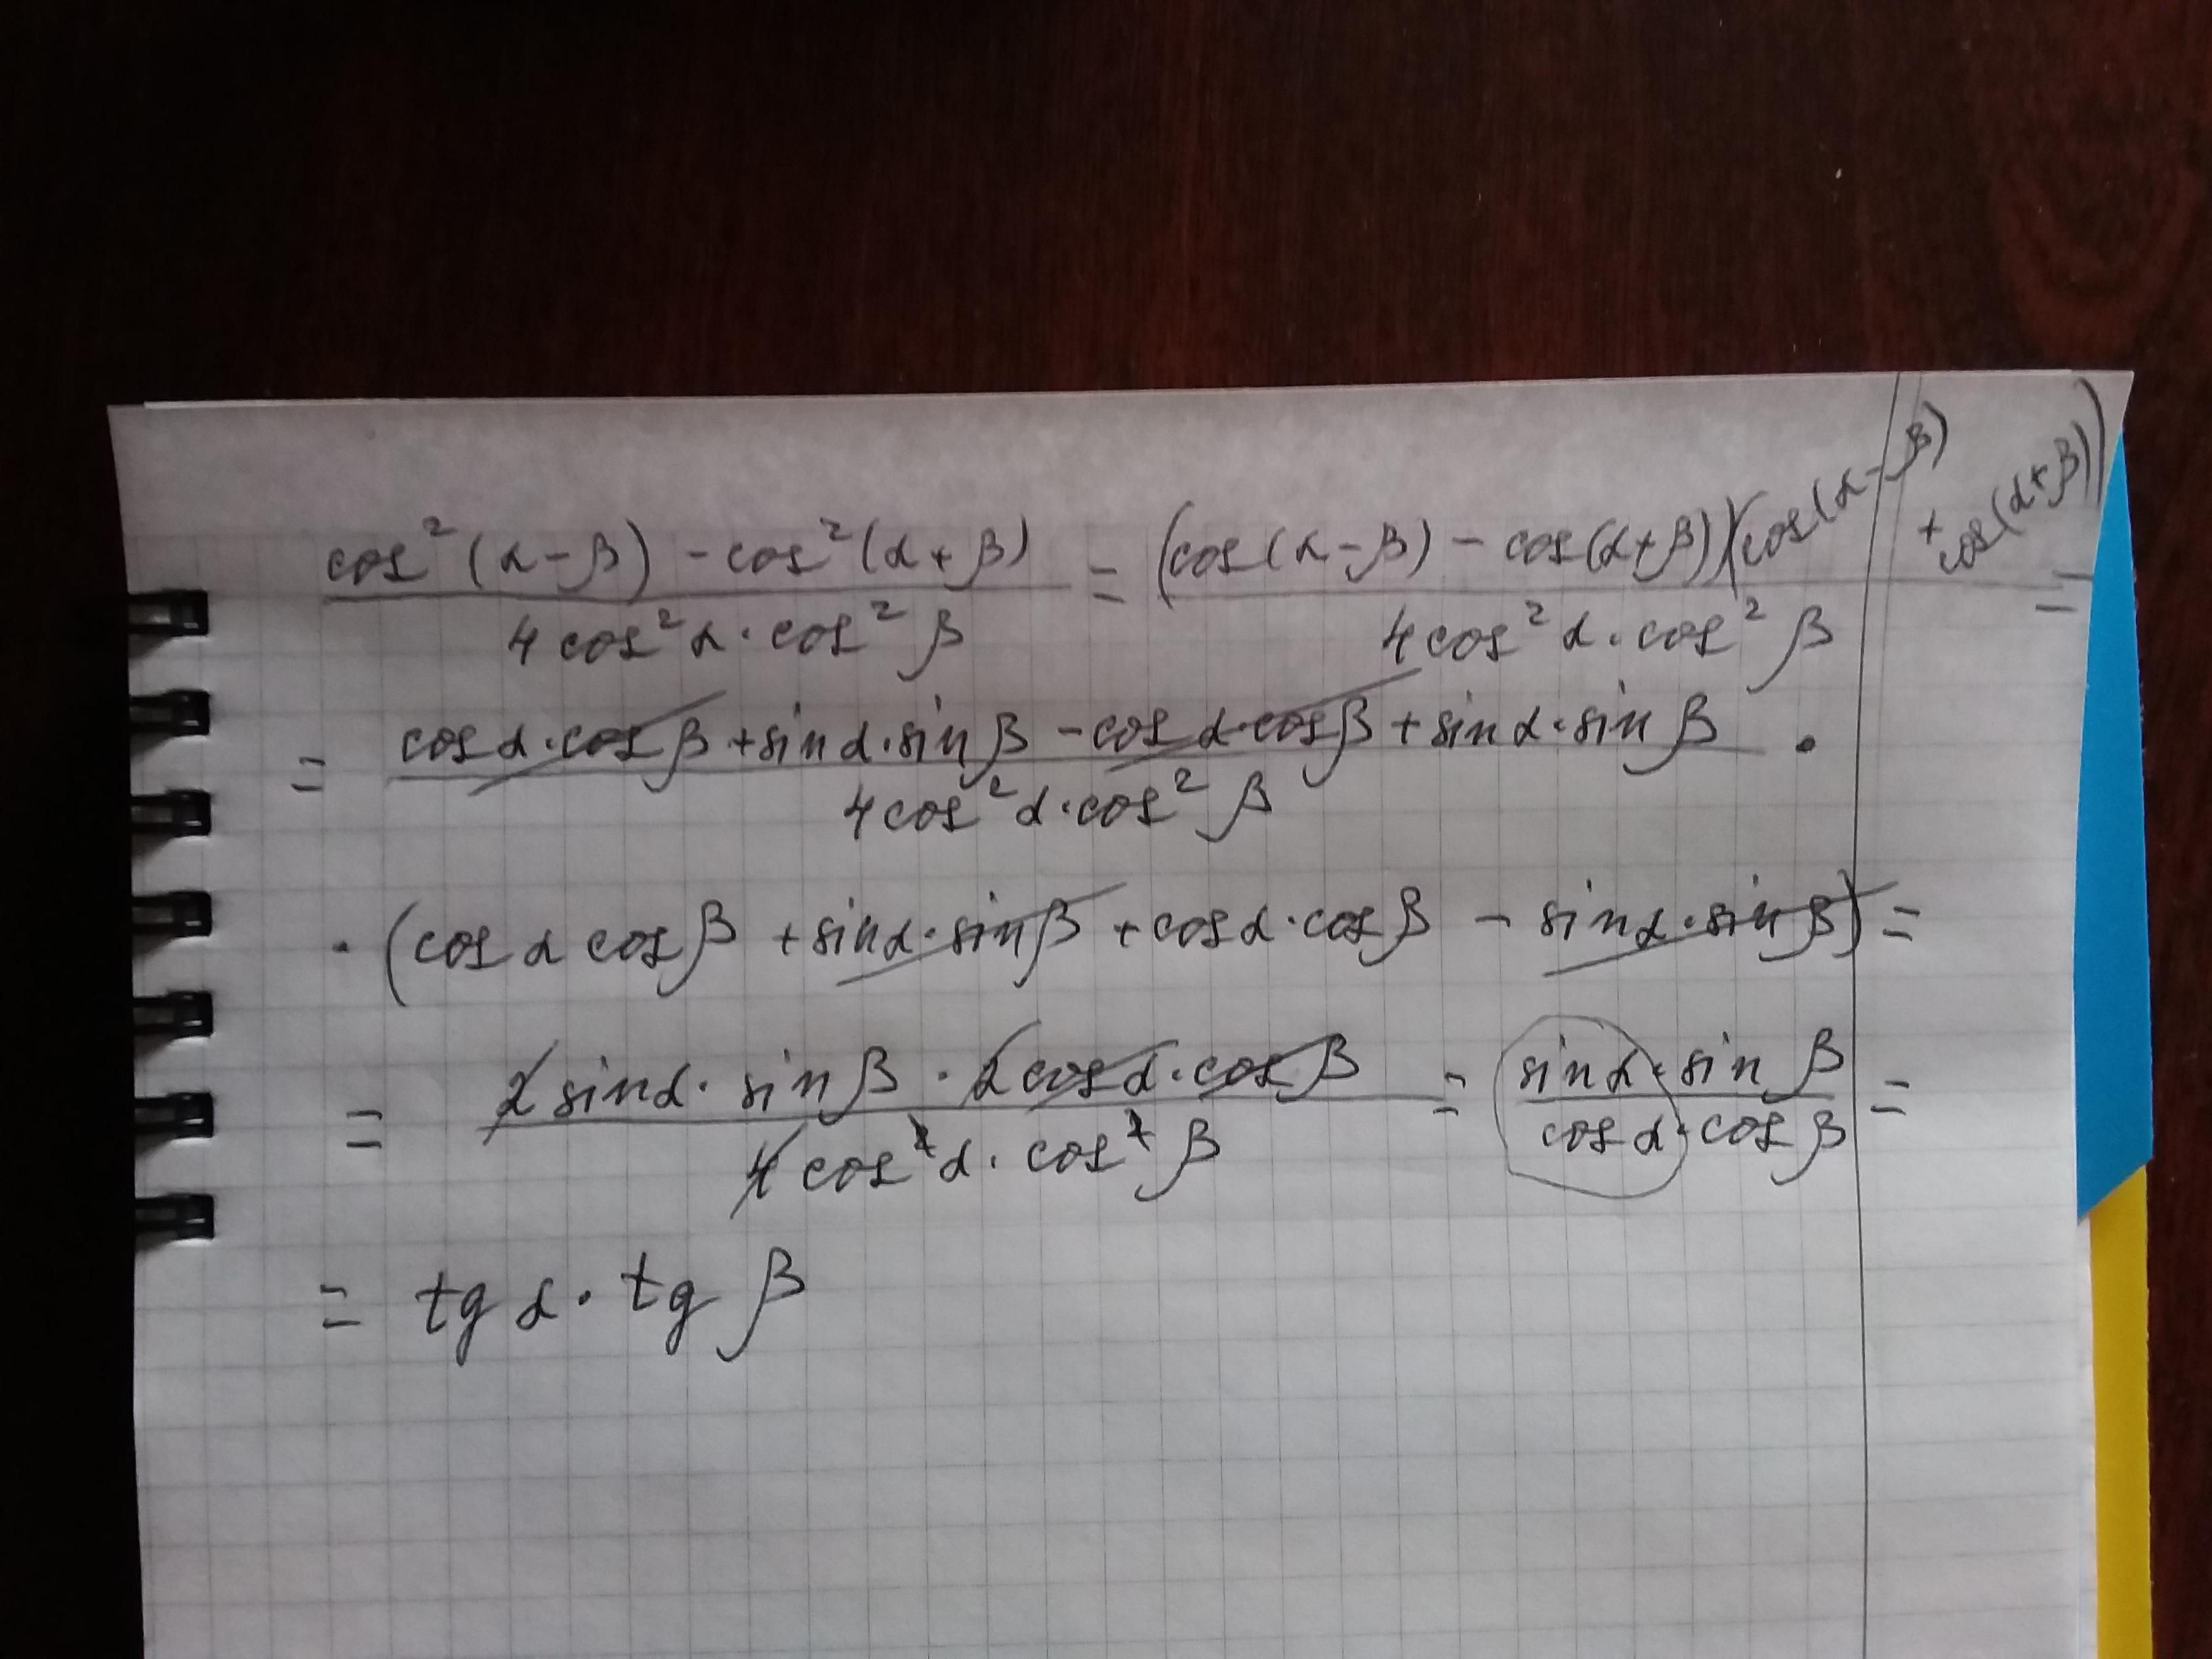 cos²(α-β) - cos²(α+β) / 4cos²α·cos²β = (cos(α-β) - cos(α+β))(cos(α-β) + cos(α+β)) / 4cos²α·cos²β =
= cosα·cosβ + sinα·sinβ - cosα·cosβ + sinα·sinβ / 4cos²α·cos²β ·
· (cosα cosβ + sinα·sinβ + cosα·cosβ - sinα·sinβ) =
= 2sinα·sinβ · 2cosα·cosβ / 4cos²α·cos²β = sinα·sinβ / cosα·cosβ =
= tgα·tgβ